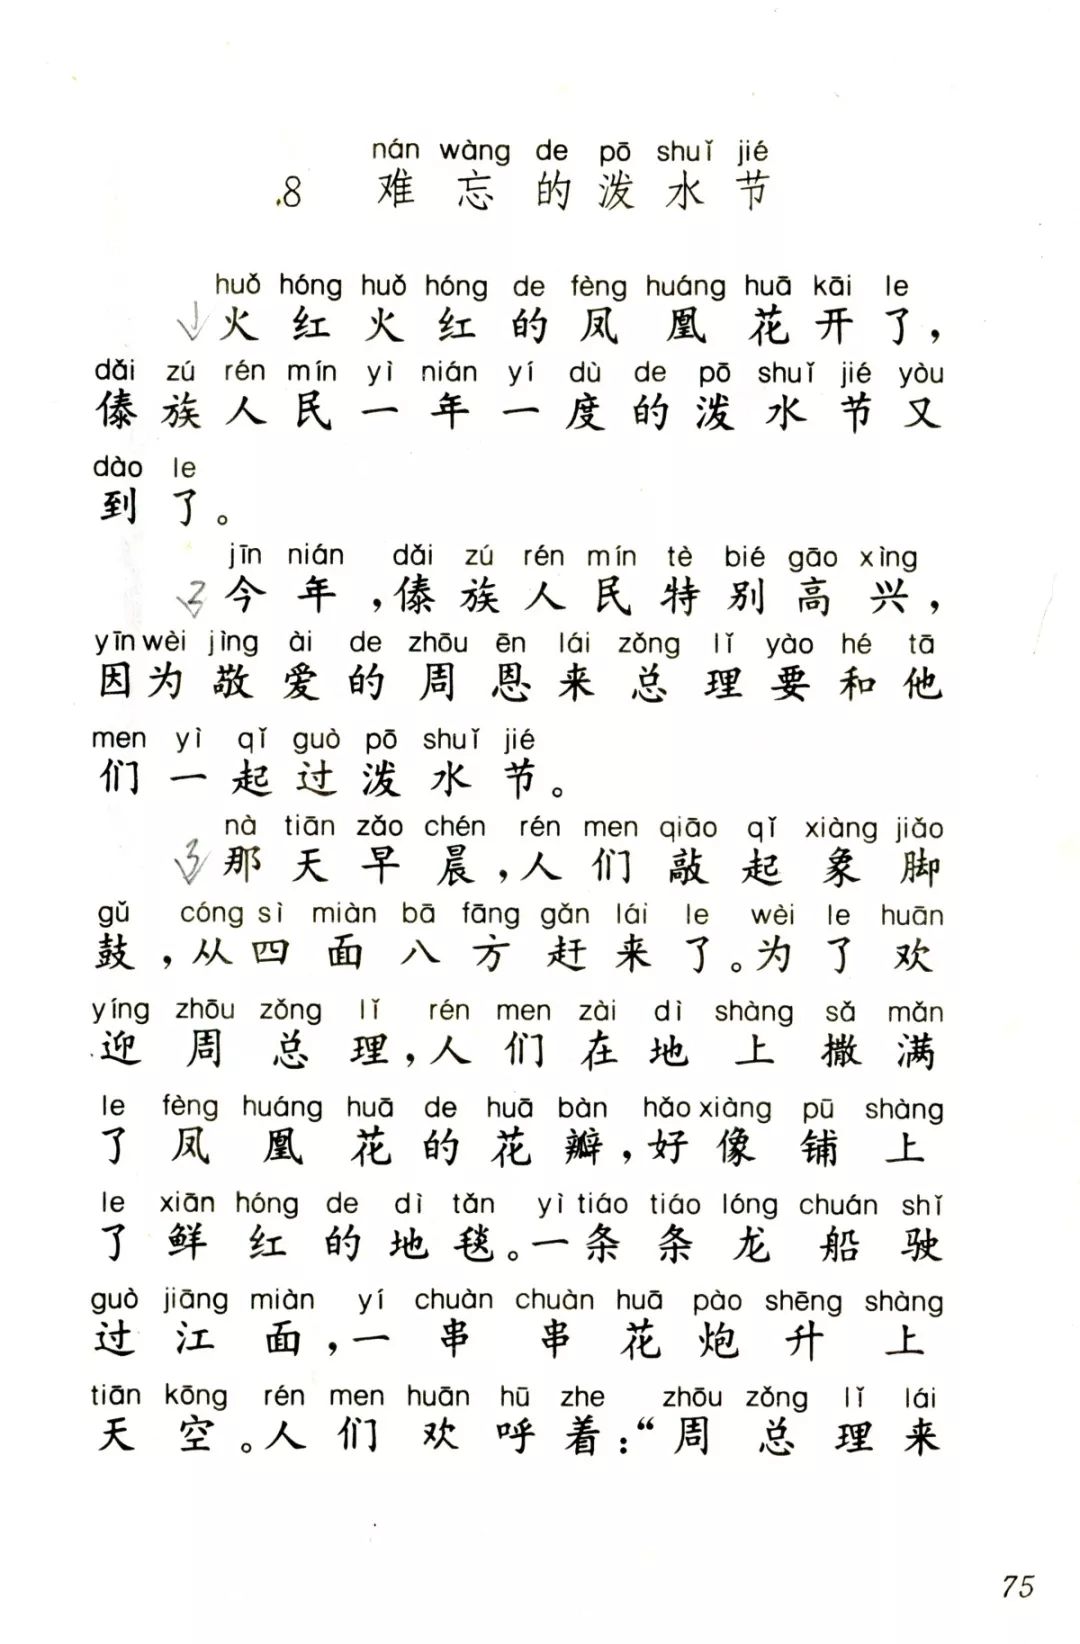 nán wàng de pō shuǐ jié
.8 难忘的泼水节
huǒ hóng huǒ hóng de fèng huáng huā kāi le
1 火红火红的凤凰花开了，
dǎi zú rén mín yì nián yí dù de pō shuǐ jié yòu
傣族人民一年一度的泼水节又
dào le
到了。
jīn nián dǎi zú rén mín tè bié gāo xìng
2 今年，傣族人民特别高兴，
yīn wèi jìng ài de zhōu ēn lái zǒng lǐ yào hé tā
因为敬爱的周恩来总理要和他
men yì qǐ guò pō shuǐ jié
们一起过泼水节。
nà tiān zǎo chén rén men qiāo qǐ xiàng jiǎo
3 那天早晨，人们敲起象脚
gǔ cóng sì miàn bā fāng gǎn lái le wèi le huān
鼓，从四面八方赶来了。为了欢
yíng zhōu zǒng lǐ rén men zài dì shàng sǎ mǎn
迎周总理，人们在地上撒满
le fèng huáng huā de huā bàn hǎo xiàng pū shàng
了凤凰花的花瓣，好像铺上
le xiān hóng de dì tǎn yì tiáo tiáo lóng chuán shǐ
了鲜红的地毯。一条条龙船驶
guò jiāng miàn yí chuàn chuàn huā pào shēng shàng
过江面，一串串花炮升上
tiān kōng rén men huān hū zhe zhōu zǒng lǐ lái
天空。人们欢呼着：“周总理来
75